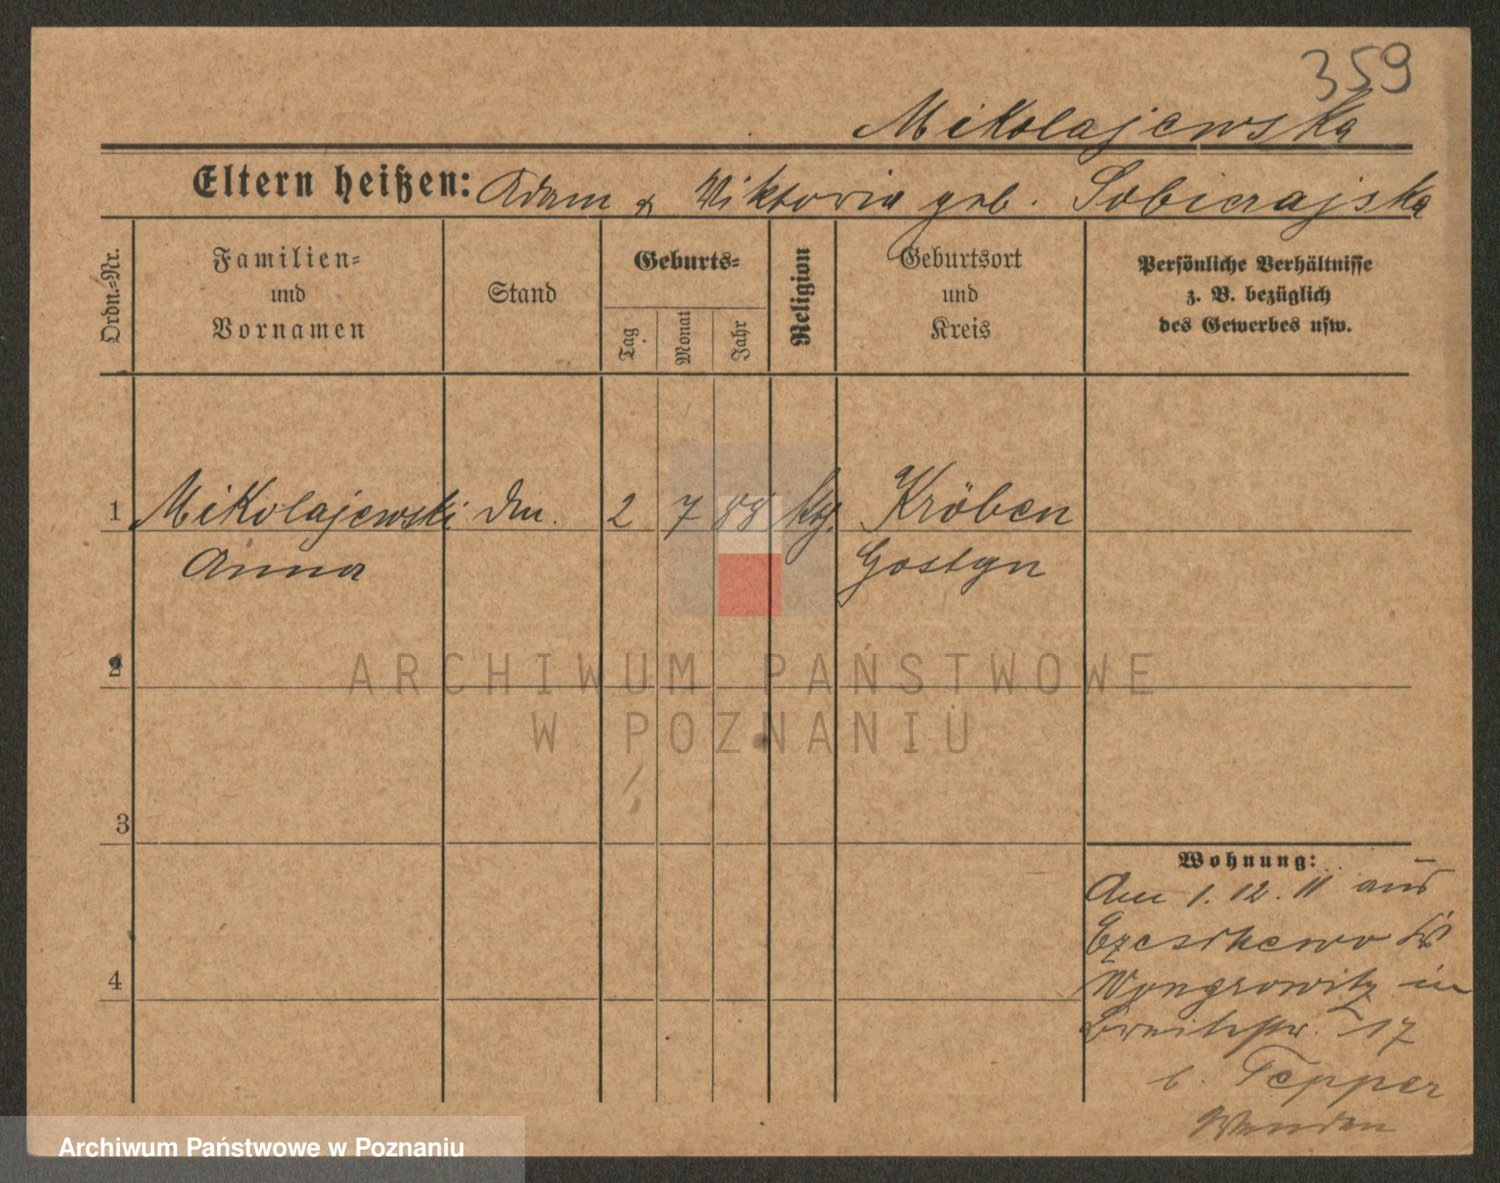 359
Mikolajewska
Eltern heißen: Adam & Viktoria geb. Sobierajska
Ordn.=Nr.
Familien=
und
Vornamen
Stand
Geburts=
Tag
Monat
Jahr
Religion
Geburtsort
und
Kreis
Persönliche Verhältnisse
z. B. bezüglich
des Gewerbes usw.
1 Mikolajewski 2 7 88 Kröben
Anna Gostyn
2
ARCHIWUM PAŃSTWOWE
W POZNANIU
3
Wohnung:
Am 1. 12. 11 aus
4
Wongrowitz in
Breitestr. 17
b. Tepper
Archiwum Państwowe w Poznaniu